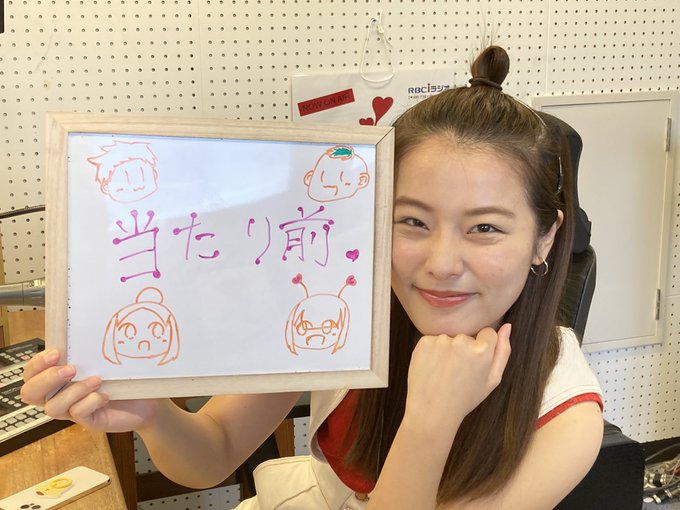 NOW ON AIR
RBCiラジオ
当たり前